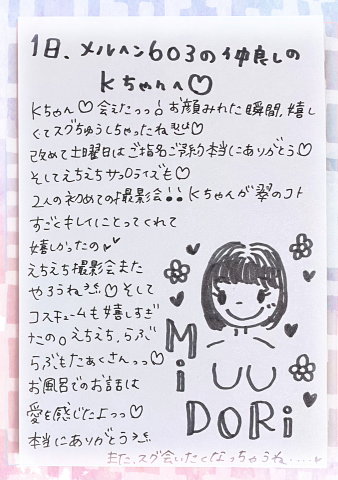 1日、メルヘン603の仲良しの
Kちゃんへ♡
Kちゃん♡会えたっっ!お顔みれた瞬間、嬉し
くてスグちゅうしちゃったね♡
改めて土曜日はご指名ご予約本当にありがとう♡
そしてえちえちサプライズも♡
2人の初めての撮影会!!Kちゃんが翠のコト
すごくキレイにとってくれて
嬉しかったの
えちえち撮影会また
やろうね♡そして
コスチュームも嬉しすぎ
たの。えちえち、らぶ
らぶもたあくさんっっ♡
お風呂でのお話は
愛を感じたよっっ♡
本当にありがとう
MiDORi
また、スグ会いたくなっちゃうね……